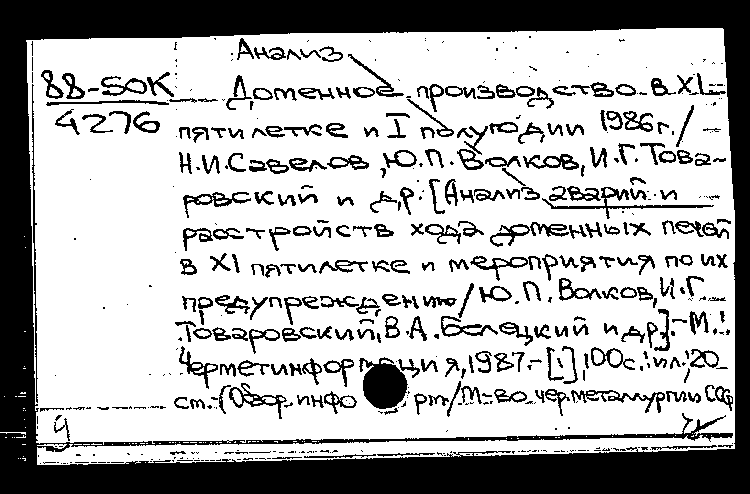 Анализ
88-50К Доменное производство в XI
4276 пятилетке и I полугодии 1986г./
Н.И.Савелов, Ю.П.Волков, И.Г.Това-
ровский и др. [Анализ аварий и
расстройств хода доменных печей
в XI пятилетке и мероприятия по их
предупреждению/Ю.П.Волков, И.Г.
Товаровский, В.А.Белецкий и др].-М.:
Черметинформация, 1987.-[.], 100с.:ил.;20
см.-(Обзор. инфо рм./М-во чер.металлургии СССР
9